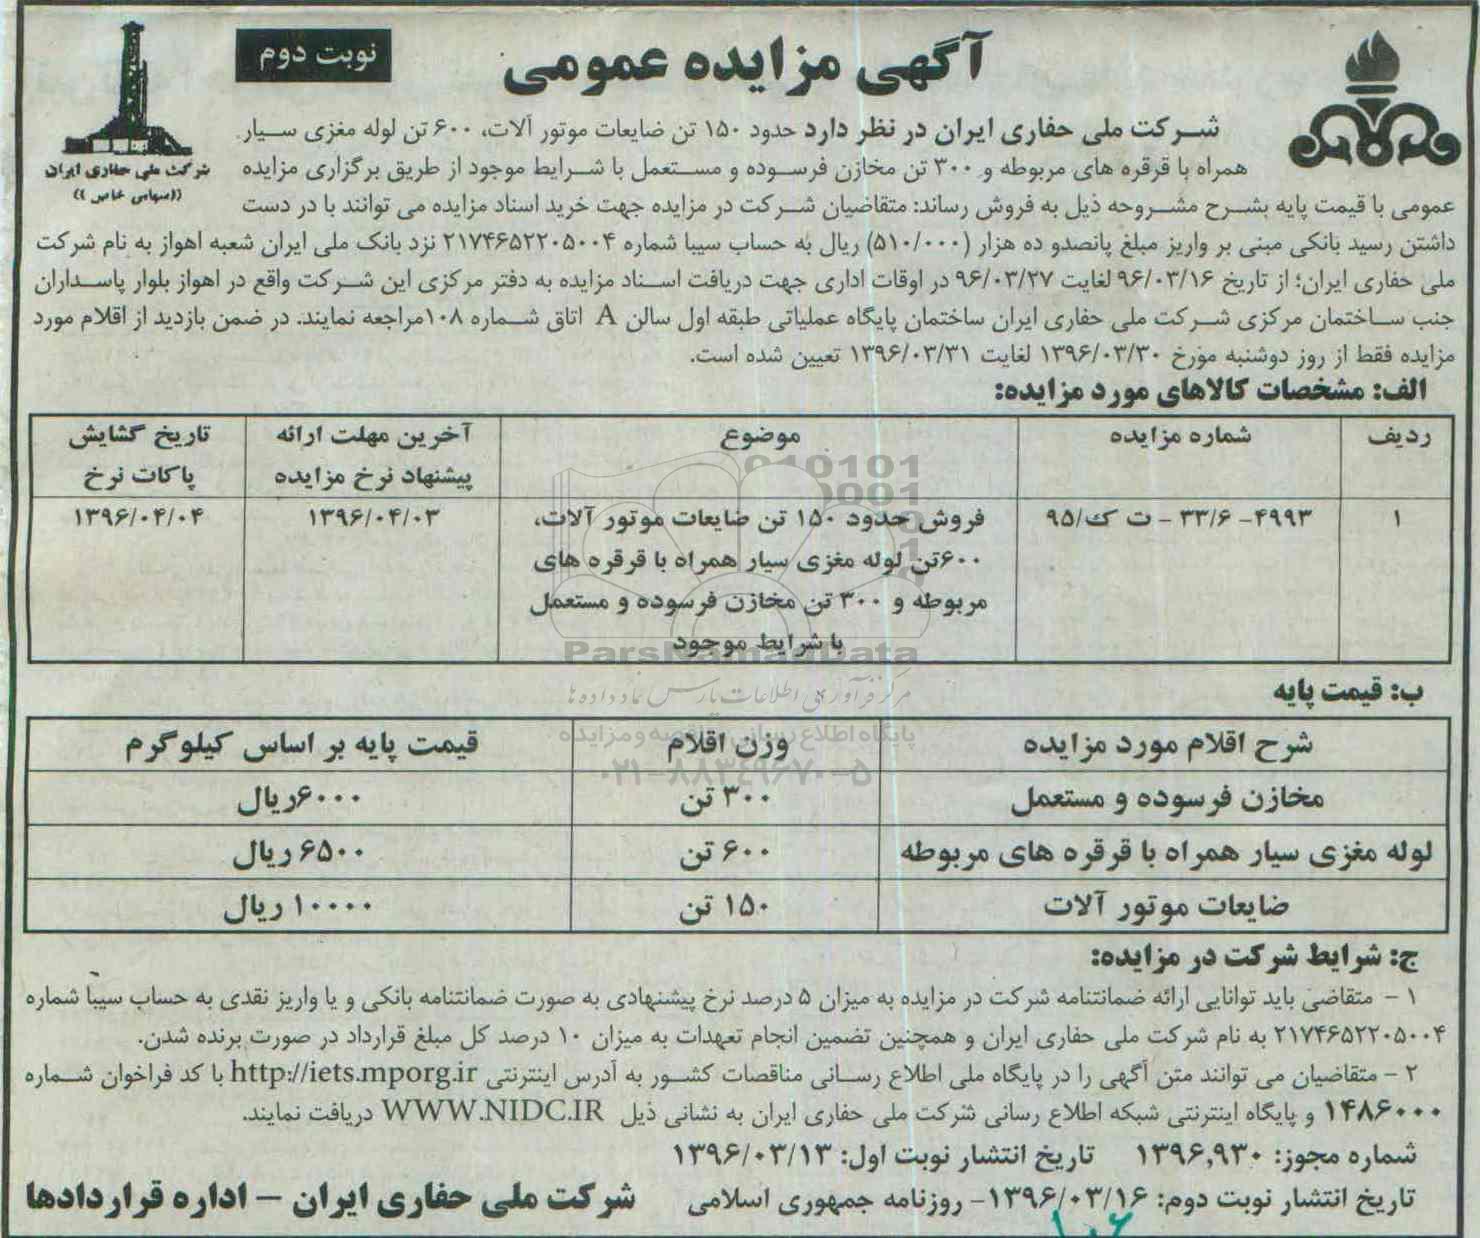 آگهی مزایده عمومی
نوبت دوم
شرکت ملی حفاری ایران
((سهامی خاص))
شرکت ملی حفاری ایران در نظر دارد حدود ۱۵۰ تن ضایعات موتور آلات، ۶۰۰ تن لوله مغزی سیار
همراه با قرقره های مربوطه و ۳۰۰ تن مخازن فرسوده و مستعمل با شرایط موجود از طریق برگزاری مزایده
عمومی با قیمت پایه بشرح مشروحه ذیل به فروش رساند: متقاضیان شرکت در مزایده جهت خرید اسناد مزایده می توانند با در دست
داشتن رسید بانکی مبنی بر واریز مبلغ پانصدو ده هزار (۵۱۰/۰۰۰) ریال به حساب سیبا شماره ۲۱۷۴۶۵۲۲۰۵۰۰۴ نزد بانک ملی ایران شعبه اهواز به نام شرکت
ملی حفاری ایران؛ از تاریخ ۹۶/۰۳/۱۶ لغایت ۹۶/۰۳/۲۷ در اوقات اداری جهت دریافت اسناد مزایده به دفتر مرکزی این شرکت واقع در اهواز بلوار پاسداران
جنب ساختمان مرکزی شرکت ملی حفاری ایران ساختمان پایگاه عملیاتی طبقه اول سالن A اتاق شماره ۱۰۸ مراجعه نمایند. در ضمن بازدید از اقلام مورد
مزایده فقط از روز دوشنبه مورخ ۱۳۹۶/۰۳/۳۰ لغایت ۱۳۹۶/۰۳/۳۱ تعیین شده است.
الف: مشخصات کالاهای مورد مزایده:
ردیف شماره مزایده موضوع آخرین مهلت ارائه پیشنهاد نرخ مزایده تاریخ گشایش پاکات نرخ
۱ ۴۹۹۳- ۳۳/۶ - ت ک/۹۵ فروش حدود ۱۵۰ تن ضایعات موتور آلات، ۱۳۹۶/۰۴/۰۳ ۱۳۹۶/۰۴/۰۴
۶۰۰تن لوله مغزی سیار همراه با قرقره های
مربوطه و ۳۰۰ تن مخازن فرسوده و مستعمل
با شرایط موجود
ParsNamadData
مرکز فرآوری اطلاعات پارس نماد داده ها
ب: قیمت پایه
پایگاه اطلاع رسانی مناقصه و مزایده
۰۲۱-۸۸۳۴۹۶۷۰-۵
شرح اقلام مورد مزایده وزن اقلام قیمت پایه بر اساس کیلوگرم
مخازن فرسوده و مستعمل ۳۰۰ تن ۶۰۰۰ریال
لوله مغزی سیار همراه با قرقره های مربوطه ۶۰۰ تن ۶۵۰۰ ریال
ضایعات موتور آلات ۱۵۰ تن ۱۰۰۰۰ ریال
ج: شرایط شرکت در مزایده:
۱ - متقاضی باید توانایی ارائه ضمانتنامه شرکت در مزایده به میزان ۵ درصد نرخ پیشنهادی به صورت ضمانتنامه بانکی و یا واریز نقدی به حساب سیبا شماره
۲۱۷۴۶۵۲۲۰۵۰۰۴ به نام شرکت ملی حفاری ایران و همچنین تضمین انجام تعهدات به میزان ۱۰ درصد کل مبلغ قرارداد در صورت برنده شدن.
۲ - متقاضیان می توانند متن آگهی را در پایگاه ملی اطلاع رسانی مناقصات کشور به آدرس اینترنتی http://iets.mporg.ir با کد فراخوان شماره
۱۴۸۶۰۰۰ و پایگاه اینترنتی شبکه اطلاع رسانی شرکت ملی حفاری ایران به نشانی ذیل WWW.NIDC.IR دریافت نمایند.
شماره مجوز: ۱۳۹۶,۹۳۰ تاریخ انتشار نوبت اول: ۱۳۹۶/۰۳/۱۳
تاریخ انتشار نوبت دوم: ۱۳۹۶/۰۳/۱۶- روزنامه جمهوری اسلامی
شرکت ملی حفاری ایران - اداره قراردادها